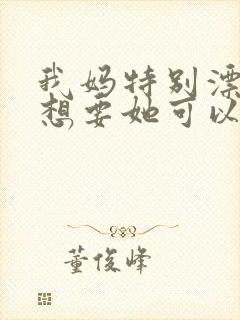 我妈特别漂
想要她可以
董俊峰